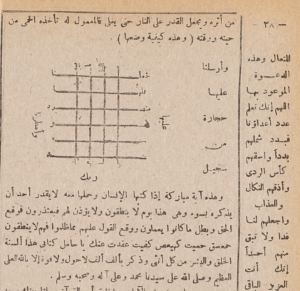 — ٣٨ —
من أثره ويجعل القدر على النار حتى يغلى فالمعمول له تأخذه الحمى من
حينه ورقته ( وهذه كيفية وضعها )
وأرسلنا
عليها
حجارة
من
سجيل
ربك
وهذه آية مباركة إذا كتبها الإنسان وحملها معه لا يقدر أحد أن
يذكره بسوء وهى هذا يوم لا ينطقون ولا يؤذن لهم فيعتذرون فوقع
الحق وبطل ما كانوا يعملون ووقع القول عليهم بما ظلموا فهم لا ينطقون
حمعسق حميت كهيعص كفيت عقدت عنك يا حامل كتابى هذا ألسنة
الخلق والبشر من كل أنثى وذكر بألف ألف لا حول ولا قوة إلا بالله العلى
العظيم وصلى الله على سيدنا محمد وعلى آله وصحبه وسلم .
للفعال وهذه
الدعوة
الموعود بها
اللهم إنك تعلم
عدد أعداؤنا
فبدد شملهم
بددا واسقهم
كأس الردى
وأذقهم النكال
والعذاب
واجعلهم لنا
فدا ولا تبق
منهم أحدا
إنك أنت
العزيز الباقى